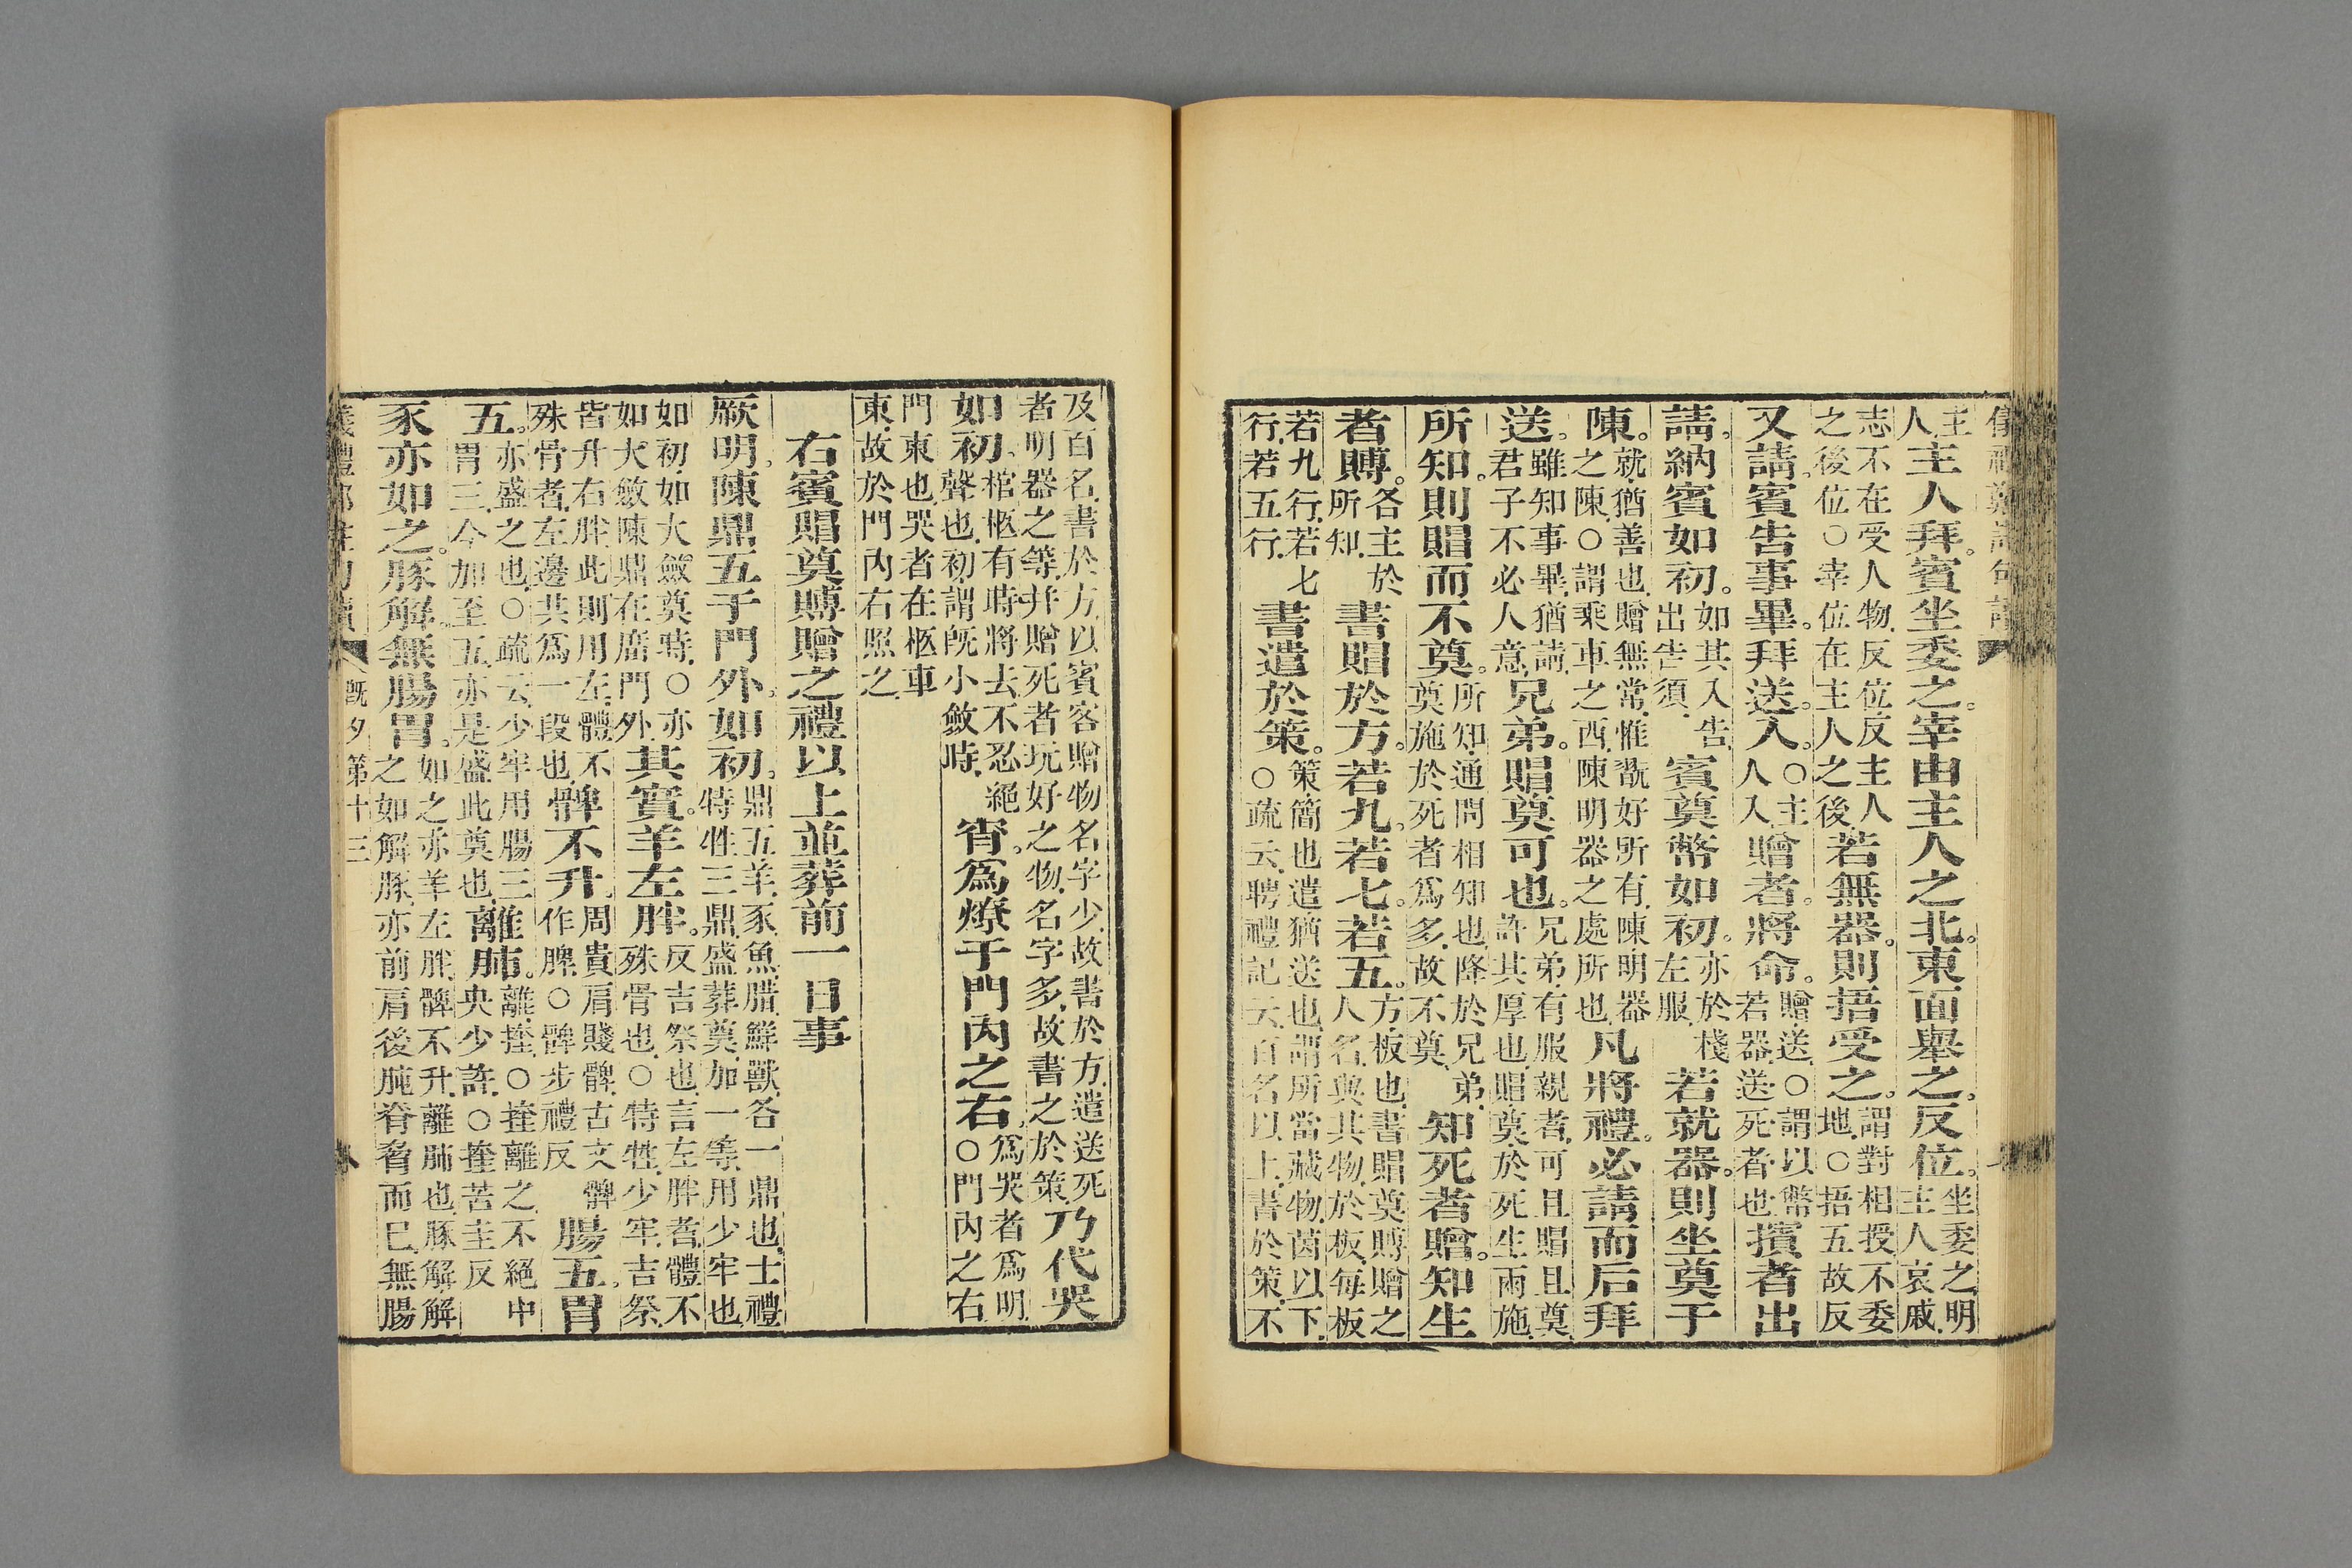 主人主人拜。賓坐委之。宰由主人之北。東面舉之。反位。坐委之明主人哀戚.
志不在受人物.反位.反主人之後位○宰位在主人之後若無器.則捂受之。謂對相授不委地.○捂五故反
又請賓告事畢.拜送。入。○主人入.贈者。將命。贈送.○謂以幣若器.送死者也擯者出
請。納賓如初。如其入告.出告須.賓奠幣如初。亦於棧左服.若就器。則坐奠于
陳。就.猶善也.贈無常.惟翫好所有.陳明器之陳.○謂乘車之西.陳明器之處所也凡將禮。必請而后拜
送。雖知事畢.猶請.君子不必人意.兄弟。賵奠可也。兄弟.有服親者.可且賵且奠許其厚也.賵奠於死生兩施.
所知。則賵而不奠。所知.通問相知也.降於兄弟.奠施於死者爲多.故不奠.知死者贈。知生
者賻。各主於所知.書賵於方。若九。若七。若五。方.板也.書賵奠賻贈之人名.與其物於板.每板
若九行.若七行.若五行.書遣於策。策.簡也.遣猶送也.謂所當藏物茵以下.○疏云.聘禮記云.百名以上.書於策.不
及百名.書於方.以賓客贈物名字少.故書於方.遣送死者明器之等.幷贈死者玩好之物.名字多.故書之於策.乃代哭
如初.棺柩有時將去.不忍絕聲也.初.謂旣小斂時.宵。爲燎于門內之右.爲哭者爲明○門內之右
門東也.哭者在柩車東.故於門內右照之.
右賓賵奠賻贈之禮以上並葬前一日事
厥明.陳鼎五于門外。如初。鼎五.羊.豕.魚.腊.鮮獸.各一鼎也.士禮特牲三鼎.盛葬奠.加一等.用少牢也
如初.如大斂奠時.○亦如大斂陳鼎在廟門外.其實。羊左胖。反吉祭也.言左胖者.體不殊骨也.○特牲.少牢.吉祭.
皆升右胖.此則用左.體不殊骨者.左邊共爲一段也.髀不升周貴肩賤髀.古文髀作脾.○髀步禮反腸五.胃
五。亦盛之也.○疏云.少牢用腸三胃三.今加至五.亦是盛此奠也離肺。離.㨒.○㨒離之不絕中央少許.○㨒苦圭反
豕亦如之。豚解。無腸胃。如之.亦羊左胖.髀不升.離肺也.豚解.解之如解豚.亦前肩後肫脊脅而已.無腸
旣夕第十三